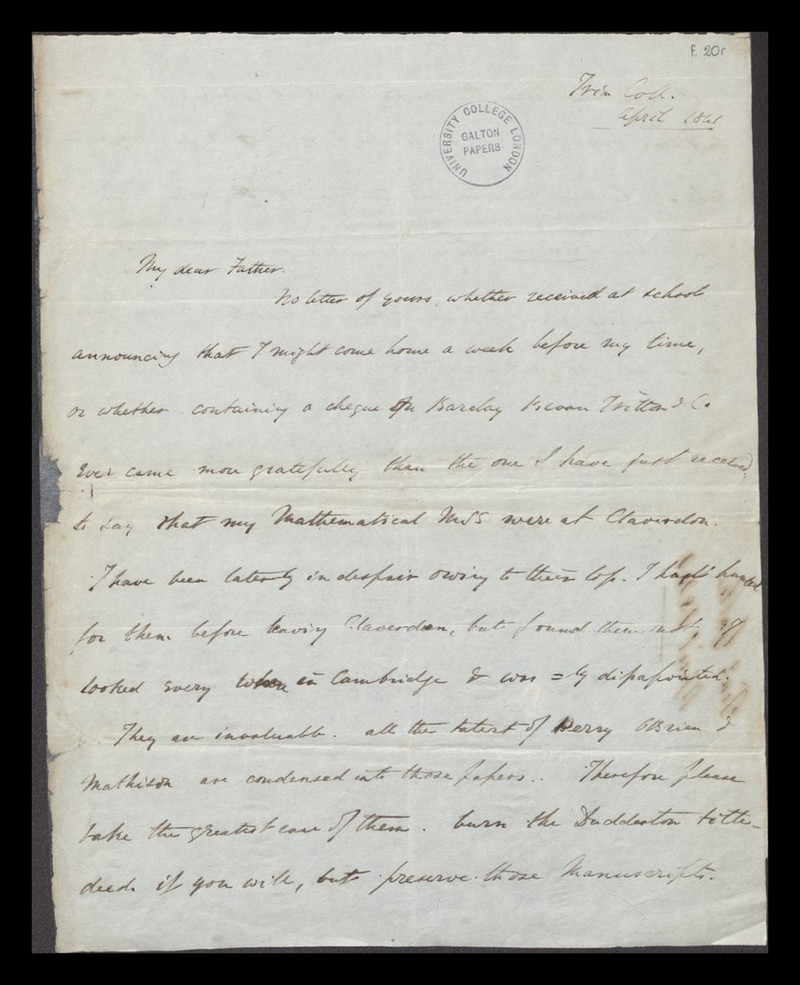 f. 20r
Trin Coll.
April 1841
UNIVERSITY COLLEGE LONDON
GALTON
PAPERS
My dear Father.
No letter of yours, whether received at school
announcing that I might come home a week before my time,
or whether containing a cheque on Barclay Bevan Tritton & Co
Ever came more gratefully than the one I have just received,
to say that my Mathematical MSS were at Claverdon.
I have been latently in despair owing to their loss. I had hunted
for them before leaving Claverdon, but found them not,
looked every where in Cambridge & was =ly disappointed.
They are invaluable. all the latest of Perry OBrien &
Mathison are condensed into those papers. Therefore please
take the greatest care of them. burn the Dudderton title-
deeds if you will, but preserve those Manuscripts.